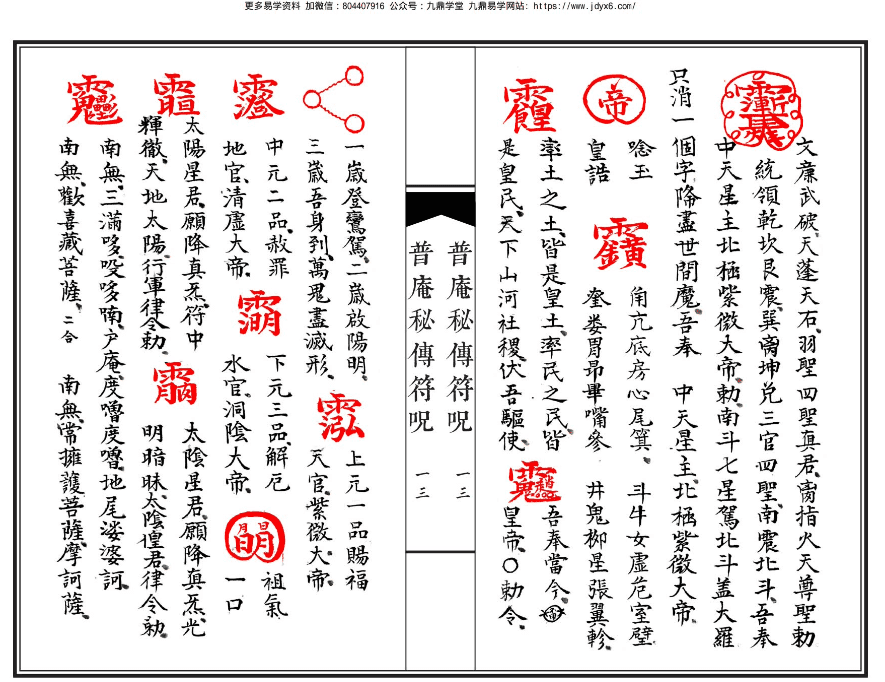 更多易学资料 加微信：804407916 公众号：九鼎学堂 九鼎易学网站：https://www.jdyx6.com/
文廉武破天蓬天石羽聖四聖真君窗指火天尊聖勅
統領乾坎艮震巽离坤兑三官四聖南震北斗吾奉
中天星主北極紫微大帝勅南斗七星駕北斗盖大羅
只消一個字降盡世間魔吾奉 中天星主北極紫微大帝
唸玉 角亢底房心尾箕 斗牛女虚危室壁
帝
皇誥 奎婁胃昴畢嘴參 井鬼柳星張翼軫
率土之土皆是皇土率民之民皆 吾奉當今
是皇民天下山河社稷伏吾驅使 皇帝○勅令
普庵秘傳符呪 一三
普庵秘傳符呪 一三
一歳登鸞駕二歳啟陽明 上元一品賜福
三歳吾身到萬鬼盡滅形 天官紫微大帝
中元二品赦罪 下元三品解厄 祖氣
地官清虚大帝 水官洞陰大帝 一口
太陽星君願降真炁符中 太陰星君願降真炁光
輝徹天地太陽行軍律令勅 明暗昧太陰皇君律令勅
南無三滿哆哎哆喃户庵度嚕度嚕地尾娑婆訶
南無歡喜藏菩薩二合 南無常擁護菩薩摩訶薩